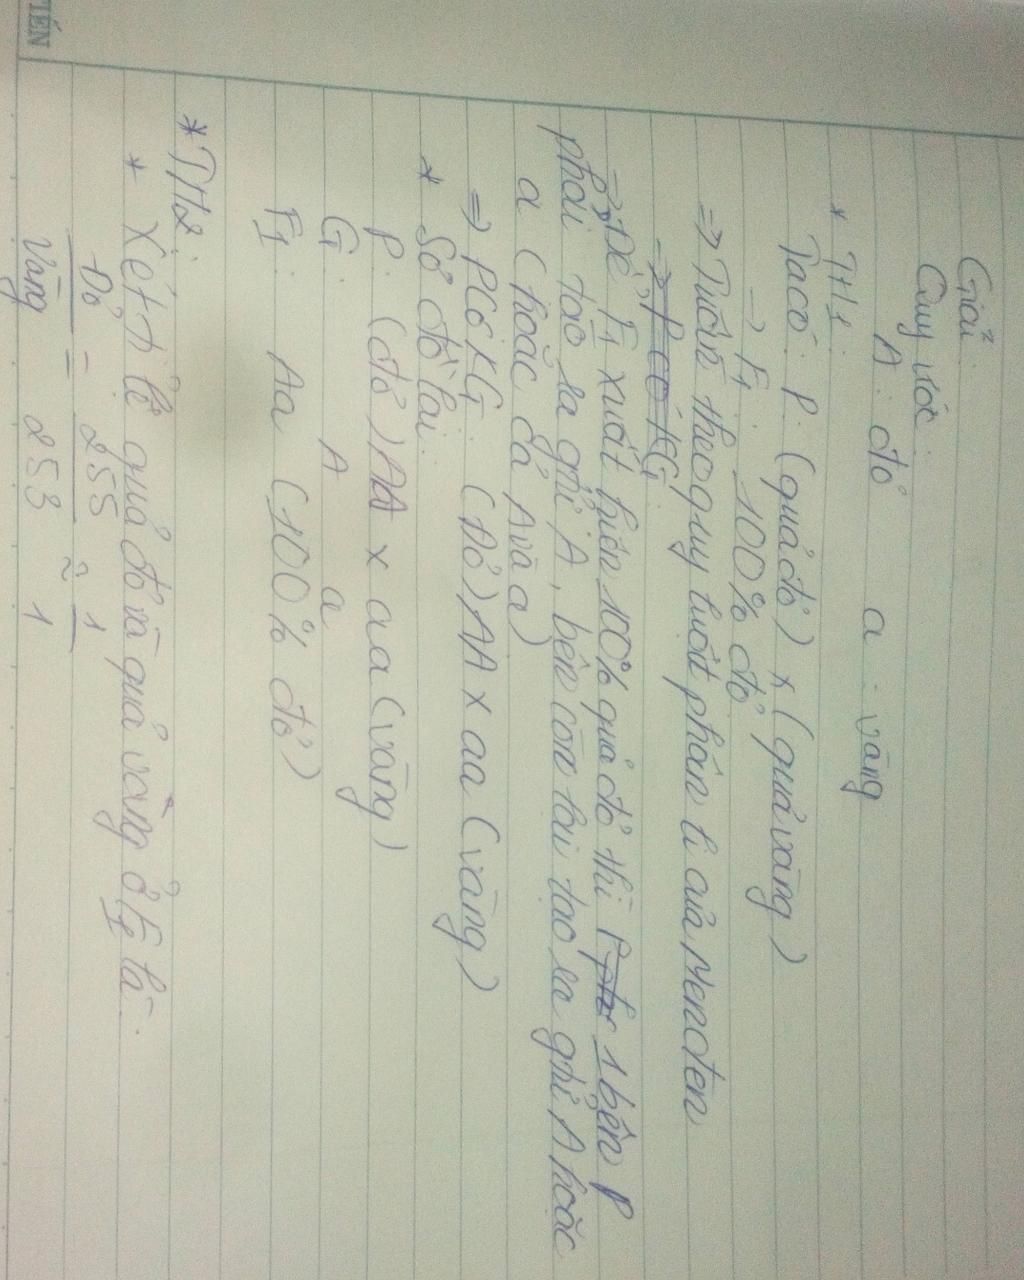 TIẾN
Giải:
Quy ước:
A: đỏ a: vàng
* TH1:
Ta có: P: (quả đỏ) x (quả vàng)
→ F1: 100% đỏ
⇒ Tuân theo quy luật phân li của Menđen
⇒ P có KG
⇒ Để F1 xuất hiện 100% quả đỏ thì P 1 bên P
phải tạo ra gtử A, bên còn lại tạo ra gtử A hoặc
a (hoặc cả A và a)
⇒ P có KG: (Đỏ) AA x aa (vàng)
* Sơ đồ lai:
P: (đỏ) AA x aa (vàng)
G: A a
F1: Aa (100% đỏ)
* TH2:
* Xét tỉ lệ quả đỏ và quả vàng ở F1 là:
Đỏ = 255 ≈ 1
Vàng 253 1